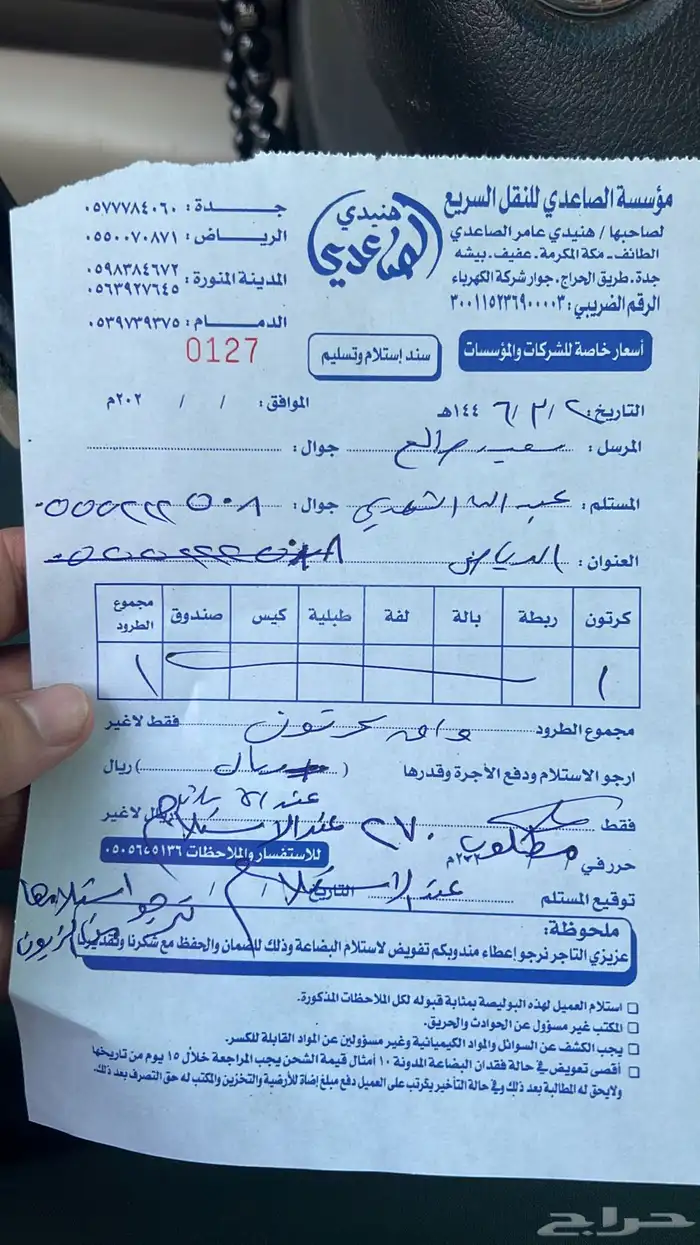 مؤسسة الصاعدي للنقل السريع
لصاحبها / هنيدي عامر الصاعدي
الطائف - مكة المكرمة - عفيف - بيشه
جدة - طريق الحراج - جوار شركة الكهرباء
الرقم الضريبي: ٣٠٠١١٥٢٣٦٩٠٠٠٠٣
هنيدي
الصاعدي
جدة: ٠٥٧٧٧٨٤٠٦٠
الرياض: ٠٥٥٠٠٧٠٨٧١
المدينة المنورة: ٠٥٩٨٣٨٤٦٧٢
٠٥٦٣٩٢٧٦٤٥
الدمام: ٠٥٣٩٧٣٩٣٧٥
0127
أسعار خاصة للشركات والمؤسسات
سند إستلام وتسليم
التاريخ: ٢ / ٣ / ٦ ١٤٤هـ الموافق: / / ٢٠٢م
المرسل: سعيد صالح جوال:
المستلم: عبد الله الشمري جوال: ٠٥٥٥٢٢٢٥٠٨
العنوان: الرياض
كرتون ربطة بالة لفة طبلية كيس صندوق مجموع الطرود
١ ١
مجموع الطرود واحد كرتون فقط لاغير
ارجو الاستلام ودفع الأجرة وقدرها ( ريال ) ريال
فقط ريال لاغير
مطلوب ٢٧٠ عند الاستلام
حرر في ٢٠٢م
للاستفسار والملاحظات ٠٥٠٥٦٤٥١٣٦
توقيع المستلم التاريخ / /
عند الاستلام
نرجو استلامها
من الزبون
ملحوظة:
عزيزي التاجر نرجو إعطاء مندوبكم تفويض لاستلام البضاعة وذلك للضمان والحفظ مع شكرنا وتقديرنا
استلام العميل لهذه البوليصة بمثابة قبوله لكل الملاحظات المذكورة.
المكتب غير مسؤول عن الحوادث والحريق.
يجب الكشف عن السوائل والمواد الكيميائية وغير مسؤولين عن المواد القابلة للكسر.
أقصى تعويض في حالة فقدان البضاعة المدونة ١٠ أمثال قيمة الشحن يجب المراجعة خلال ١٥ يوم من تاريخها
ولايحق له المطالبة بعد ذلك وفي حالة التأخير يترتب على العميل دفع مبلغ إضافة للأرضية والتخزين والمكتب له حق التصرف بعد ذلك.
حراج